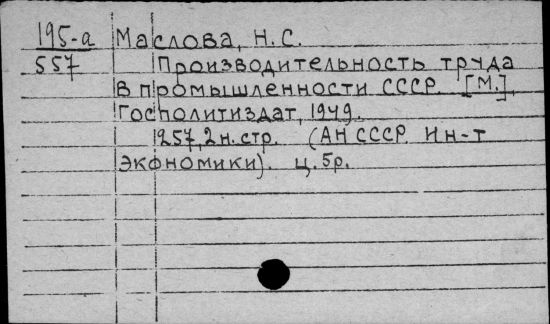 195-а Маслова, Н.С.
557 Производительность труда
в промышленности СССР. [М.],
Госполитиздат, 1949.
257, 2 н. стр. (АН СССР. Ин-т
экономики). ц. 5р.